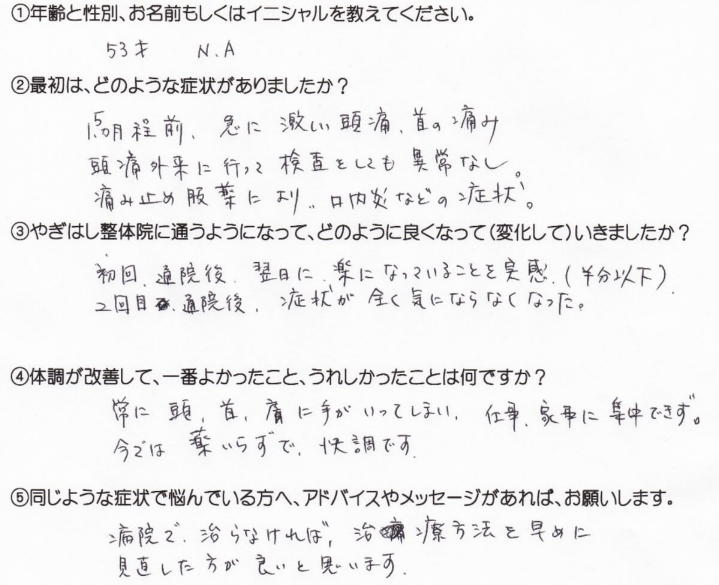 ①年齢と性別、お名前もしくはイニシャルを教えてください。
53才 N.A
②最初は、どのような症状がありましたか？
1.5ヵ月程前、急に激しい頭痛、首の痛み
頭痛外来に行って検査をしても異常なし。
痛み止め服薬により、口内炎などの症状。
③やぎはし整体院に通うようになって、どのように良くなって(変化して)いきましたか？
初回、通院後、翌日に、楽になっていることを実感.(半分以下)
2回目、通院後、症状が全く気にならなくなった。
④体調が改善して、一番よかったこと、うれしかったことは何ですか？
常に頭、首、肩に手がいってしまい、仕事、家事に集中できず。
今では薬いらずで、快調です.
⑤同じような症状で悩んでいる方へ、アドバイスやメッセージがあれば、お願いします。
病院で、治らなければ、治療方法を早めに
見直した方が良いと思います.